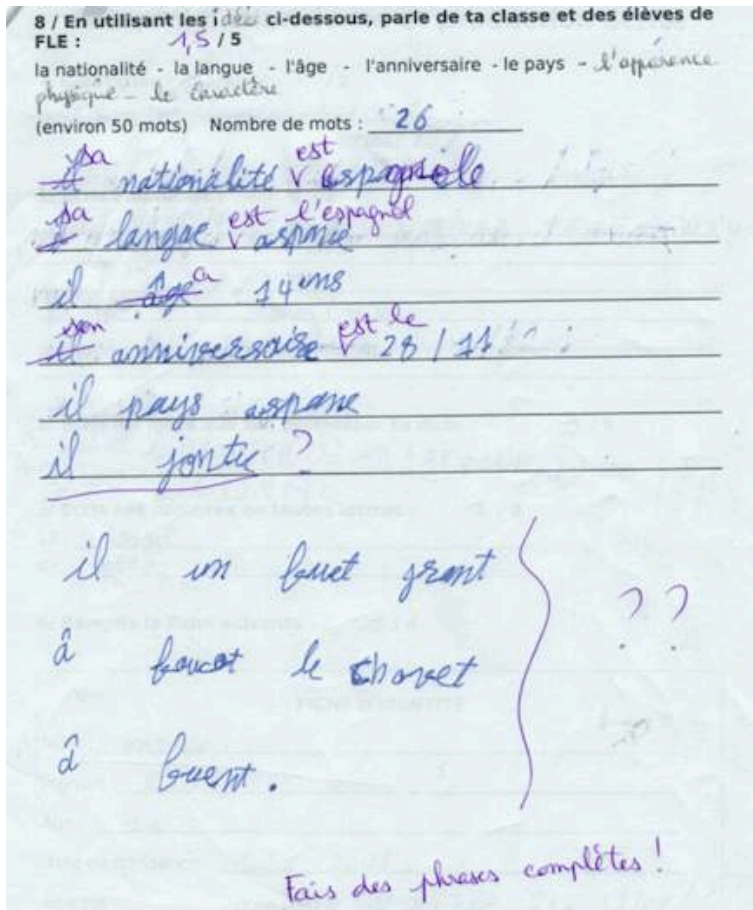 8 / En utilisant les idées ci-dessous, parle de ta classe et des élèves de
FLE : 1,5 / 5
la nationalité - la langue - l'âge - l'anniversaire - le pays - l'apparence
physique - le caractère
(environ 50 mots) Nombre de mots : 26
sa est
il nationalité v espagnole
sa est l'espagnol
il langue v aspane
il âge a 14 ans
son est le
il anniversaire v 28 / 11
il pays aspane
il jontie ?
il un buet grant
à boucot le chovet ??
à buent.
Fais des phrases complètes !